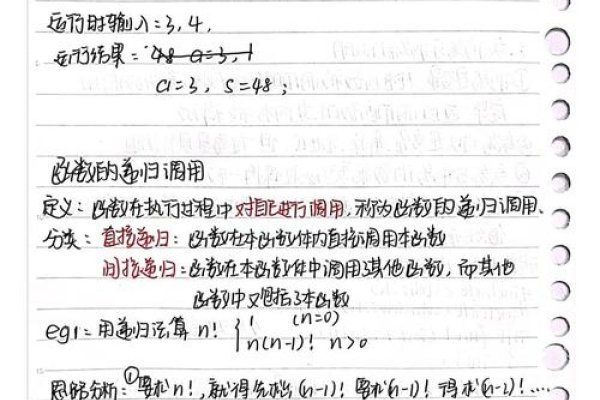 运行时输入=3,4,
运行结果=48 a=3,1
a=3, s=48;
函数的递归调用
定义:函数在执行过程中对自己进行调用,称为函数的递归调用、
分类:直接递归:函数在本函数体内直接调用本函数
间接递归:函数在本函数体中调用了其他函数,而其他
函数中又包括了本函数
eg1:用递归法算n! { 1 (n=0)
n(n-1)! n>0
思路分析:①要求n!,就得先求出(n-1)! 要求(n-1)! 得求(n-2)!....